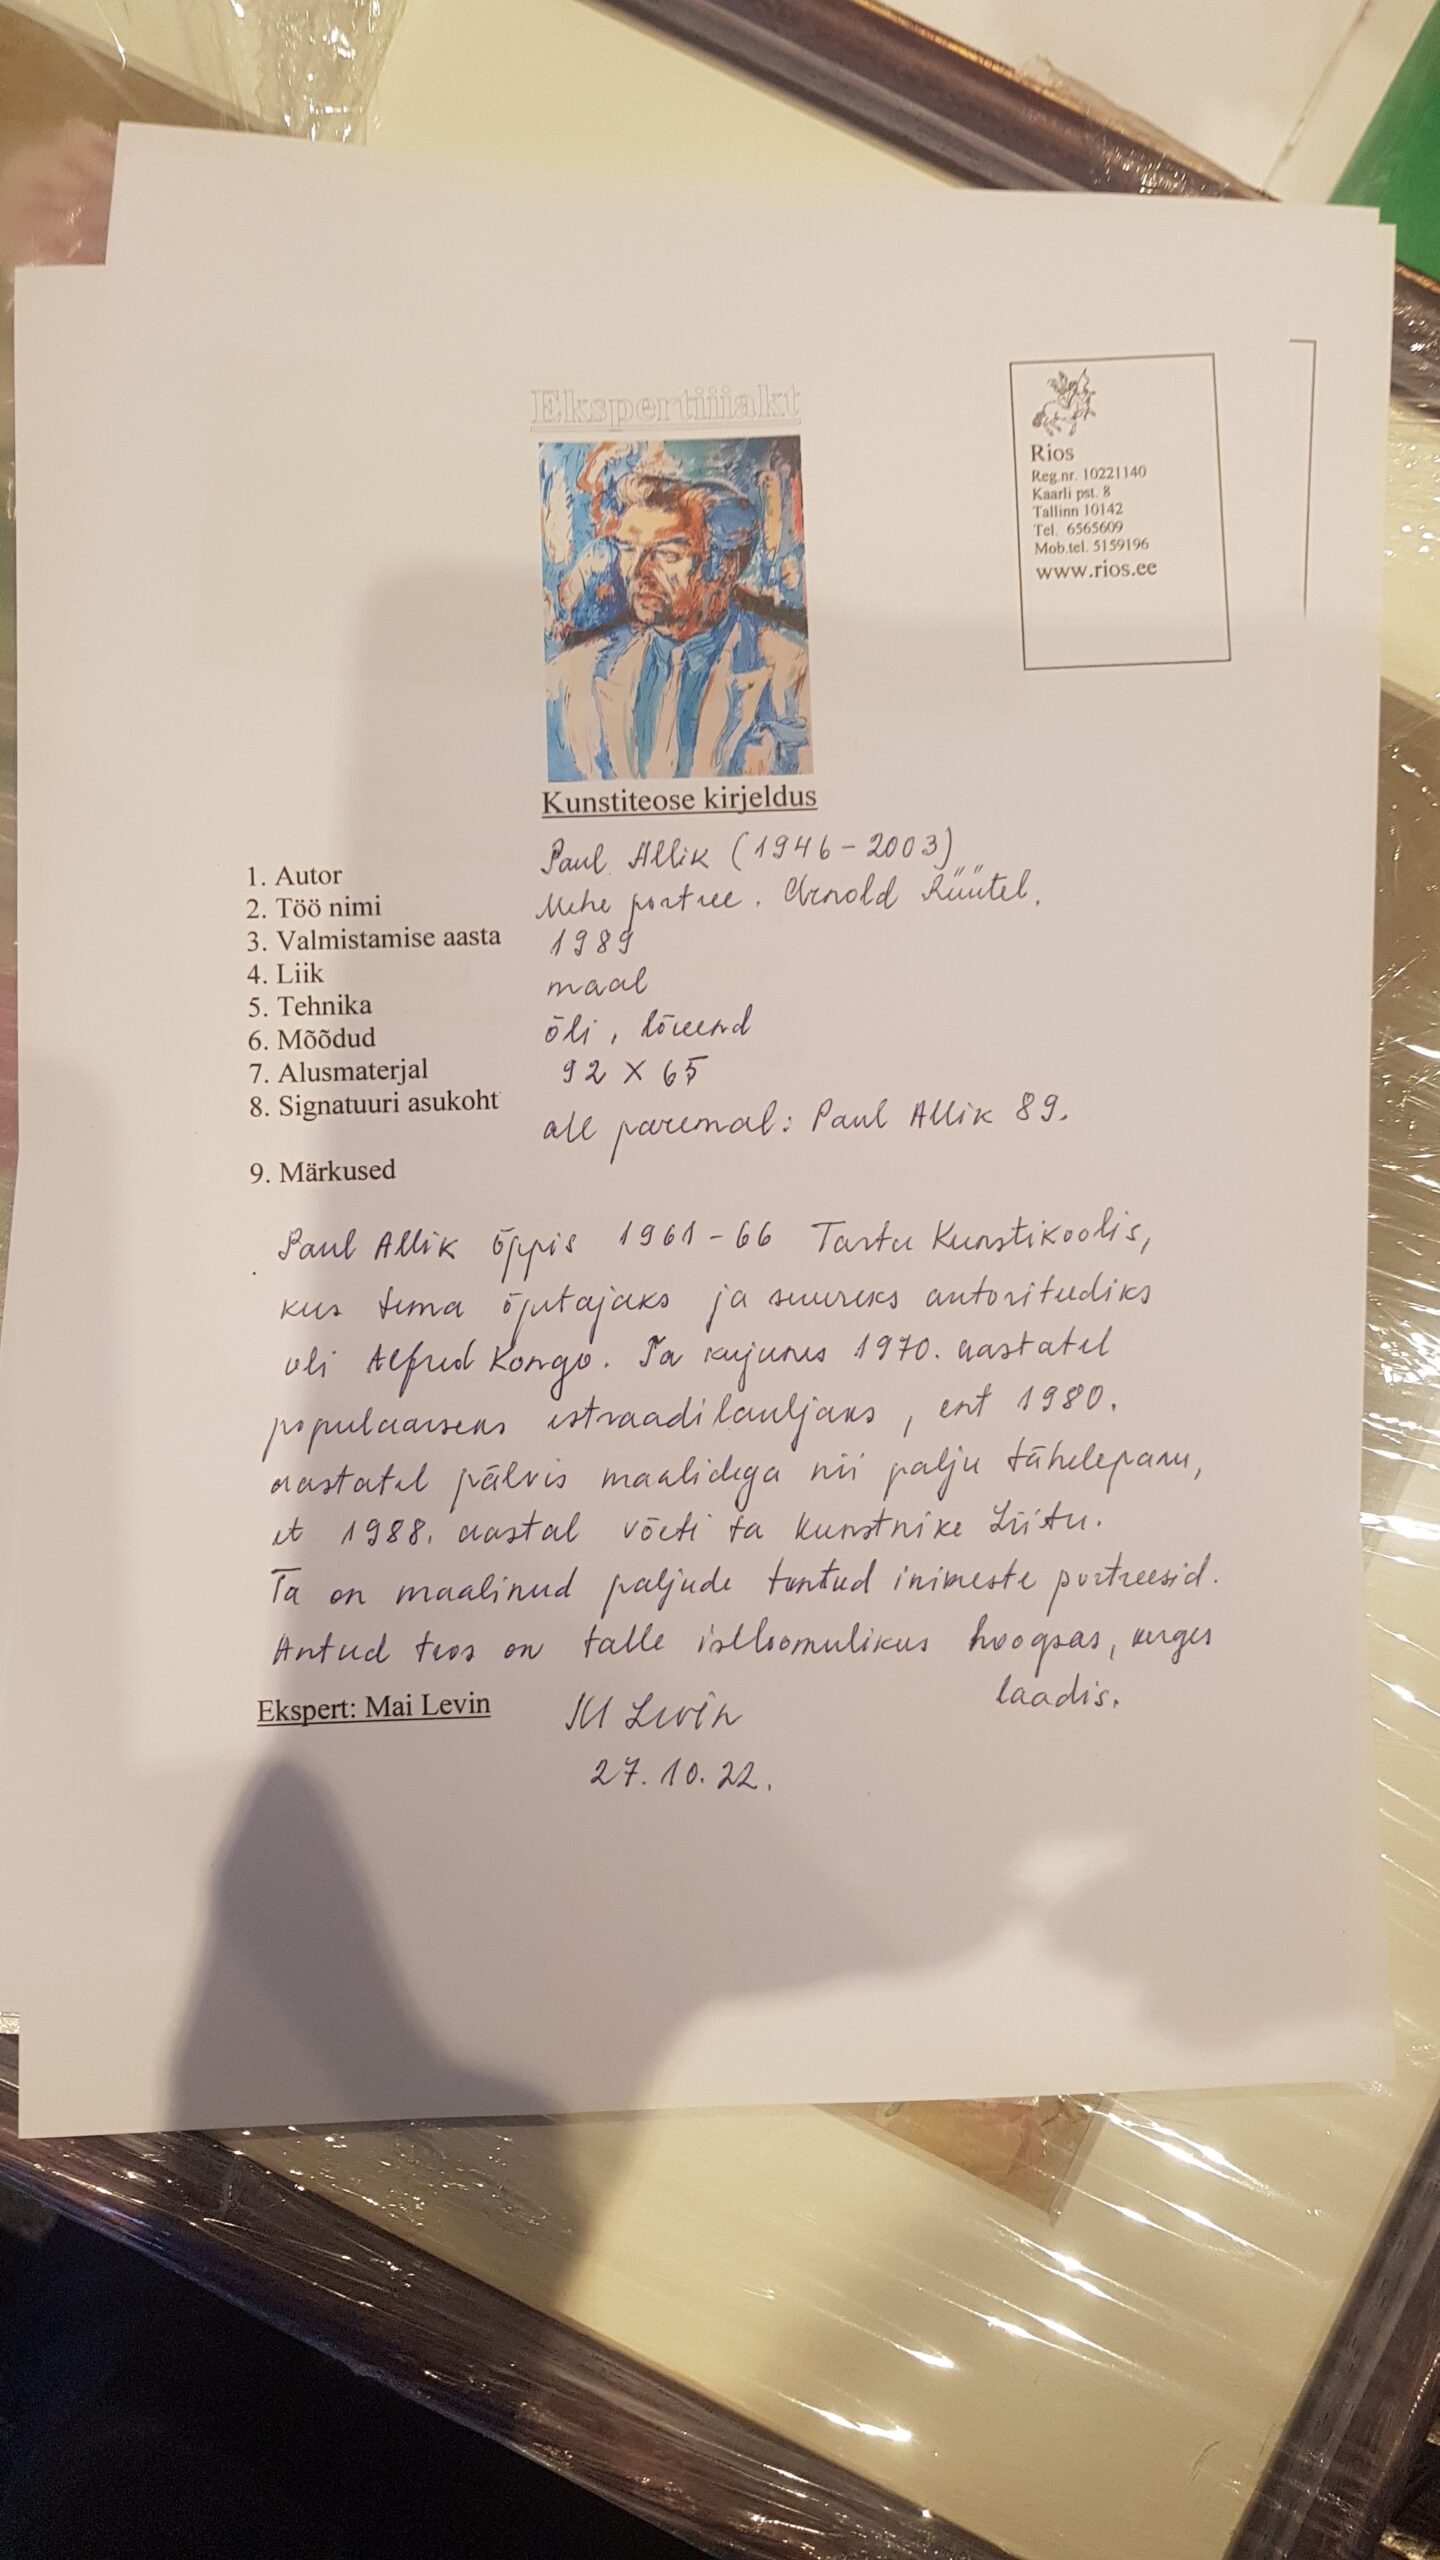 Ekspertiiiakt
Rios
Reg.nr. 10221140
Kaarli pst. 8
Tallinn 10142
Tel. 6565609
Mob.tel. 5159196
www.rios.ee
Kunstiteose kirjeldus
1. Autor Paul Allik (1946-2003)
2. Töö nimi Mehe portree. Arnold Rüütel.
3. Valmistamise aasta 1989
4. Liik maal
5. Tehnika õli, lõuend
6. Mõõdud 92 x 65
7. Alusmaterjal
8. Signatuuri asukoht all paremal: Paul Allik 89.
9. Märkused
Paul Allik õppis 1961-66 Tartu Kunstikoolis,
kus tema õpetajaks ja suureks autoriteediks
oli Alfred Kongo. Ta kujunes 1970. aastatel
populaarseks estraadilauljaks, ent 1980.
aastatel pälvis maalidega nii palju tähelepanu,
et 1988. aastal võeti ta Kunstnike Liitu.
Ta on maalinud paljude tuntud inimeste portreesid.
Antud teos on talle iseloomulikus hoogsas, kerges
laadis.
Ekspert: Mai Levin M Levin
27.10.22.